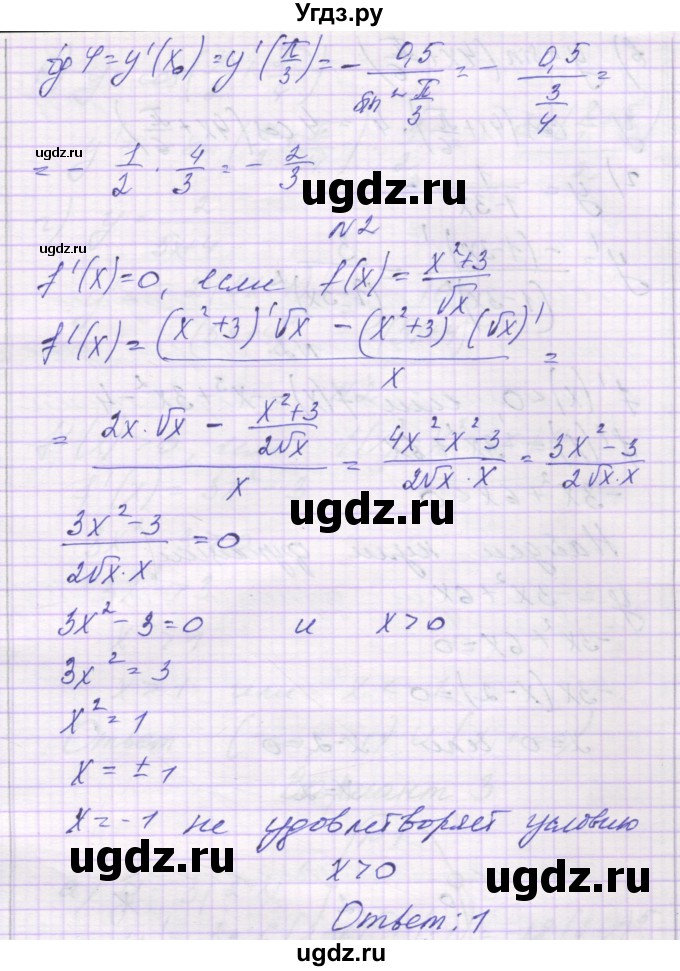 Угдз.ру
tg φ = y'(x₀) = y'(π/3) = - 0,5/(sin² π/3) = - 0,5/(3/4) =
ugdz.ru
ugdz.ru
= - 1/2 · 4/3 = - 2/3
ugdz.ru
N2
ugdz.ru
f'(x) = 0, если f(x) = (x²+3)/√x
f'(x) = ((x²+3)'√x - (x²+3)(√x)')/x =
ugdz.ru
= (2x·√x - (x²+3)/(2√x))/x = (4x²-x²-3)/(2√x·x) = (3x²-3)/(2√x·x)
ugdz.ru
(3x²-3)/(2√x·x) = 0
3x² - 3 = 0 и x > 0
3x² = 3
ugdz.ru
x² = 1
x = ± 1
x = -1 не удовлетворяет условию
ugdz.ru
x > 0
ugdz.ru
Ответ: 1
ugdz.ru
ugdz.ru